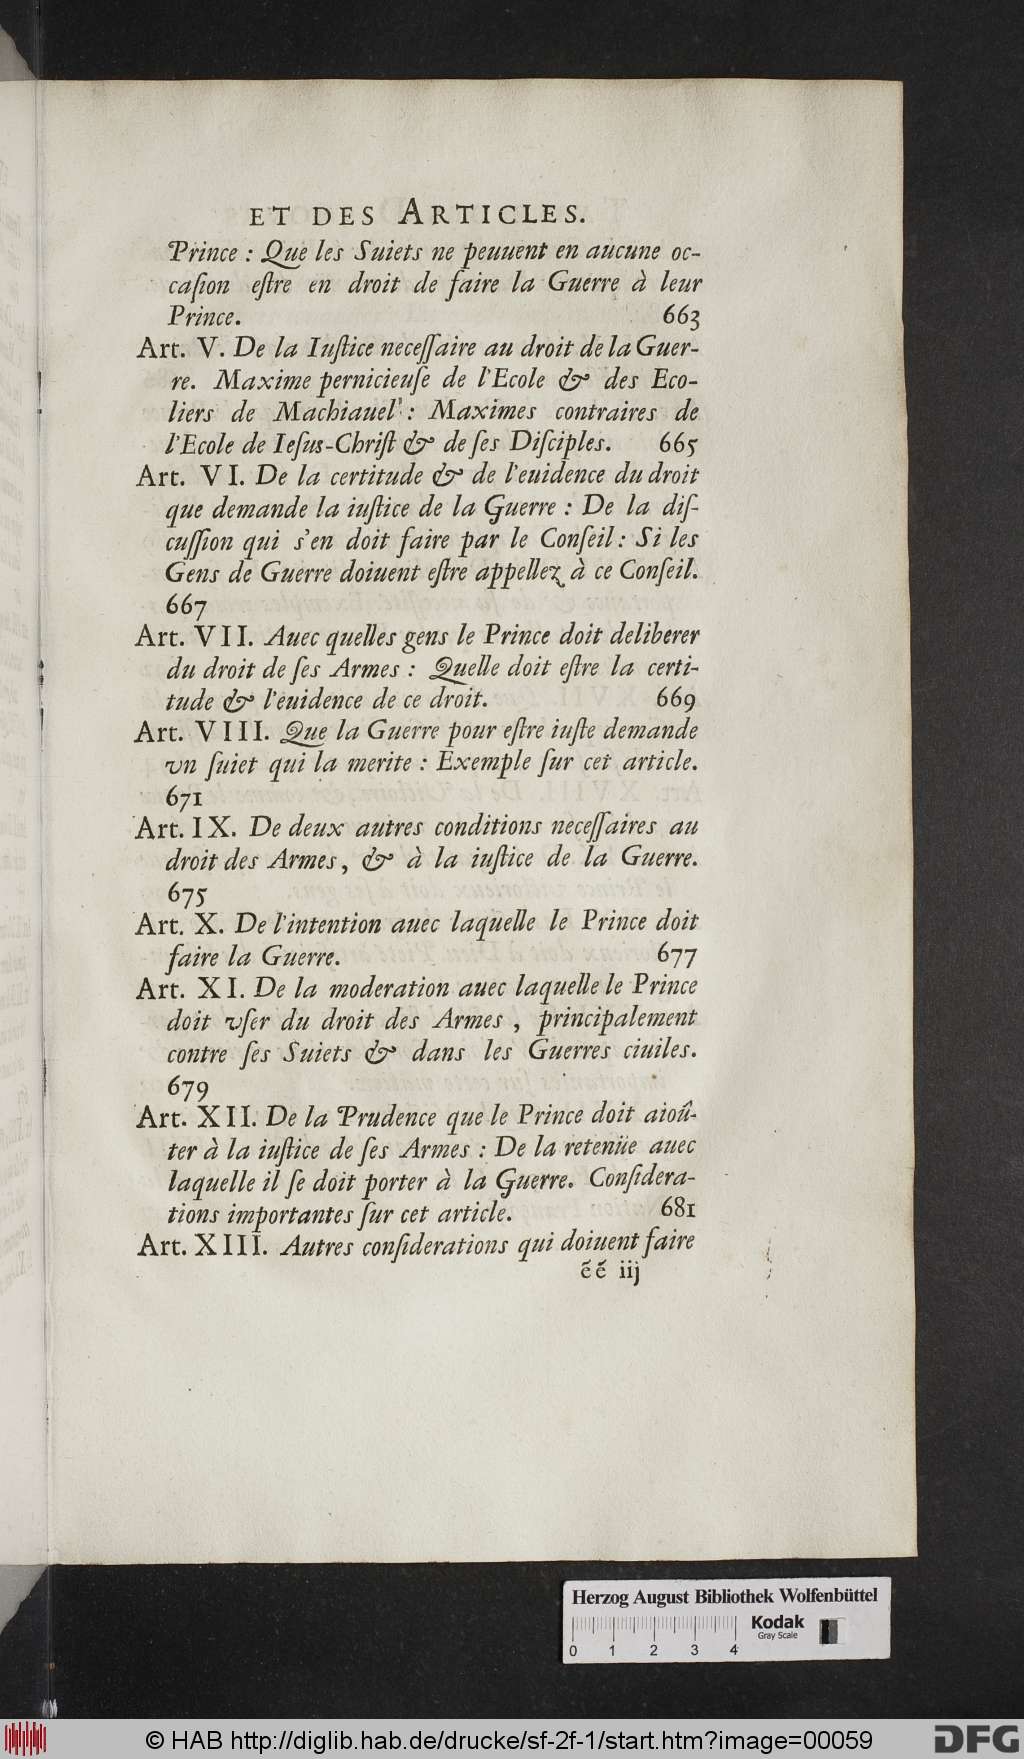 ET DES ARTICLES.
Prince : Que les Suiets ne peuuent en aucune oc-
caſion eſtre en droit de faire la Guerre à leur
Prince. 663
Art. V. De la Iuſtice neceſſaire au droit de la Guer-
re. Maxime pernicieuſe de l'Ecole & des Eco-
liers de Machiauel : Maximes contraires de
l'Ecole de Ieſus-Chriſt & de ſes Diſciples. 665
Art. VI. De la certitude & de l'euidence du droit
que demande la iuſtice de la Guerre : De la diſ-
cuſſion qui s'en doit faire par le Conſeil : Si les
Gens de Guerre doiuent eſtre appellez à ce Conſeil.
667
Art. VII. Auec quelles gens le Prince doit deliberer
du droit de ſes Armes : Quelle doit eſtre la certi-
tude & l'euidence de ce droit. 669
Art. VIII. Que la Guerre pour eſtre iuſte demande
vn ſuiet qui la merite : Exemple ſur cet article.
671
Art. IX. De deux autres conditions neceſſaires au
droit des Armes, & à la iuſtice de la Guerre.
675
Art. X. De l'intention auec laquelle le Prince doit
faire la Guerre. 677
Art. XI. De la moderation auec laquelle le Prince
doit vſer du droit des Armes , principalement
contre ſes Suiets & dans les Guerres ciuiles.
679
Art. XII. De la Prudence que le Prince doit aioû-
ter à la iuſtice de ſes Armes : De la retenüe auec
laquelle il ſe doit porter à la Guerre. Conſidera-
tions importantes ſur cet article. 681
Art. XIII. Autres conſiderations qui doiuent faire
é é iij
Herzog August Bibliothek Wolfenbüttel
Kodak
Gray Scale
0 1 2 3 4
© HAB http://diglib.hab.de/drucke/sf-2f-1/start.htm?image=00059
DFG